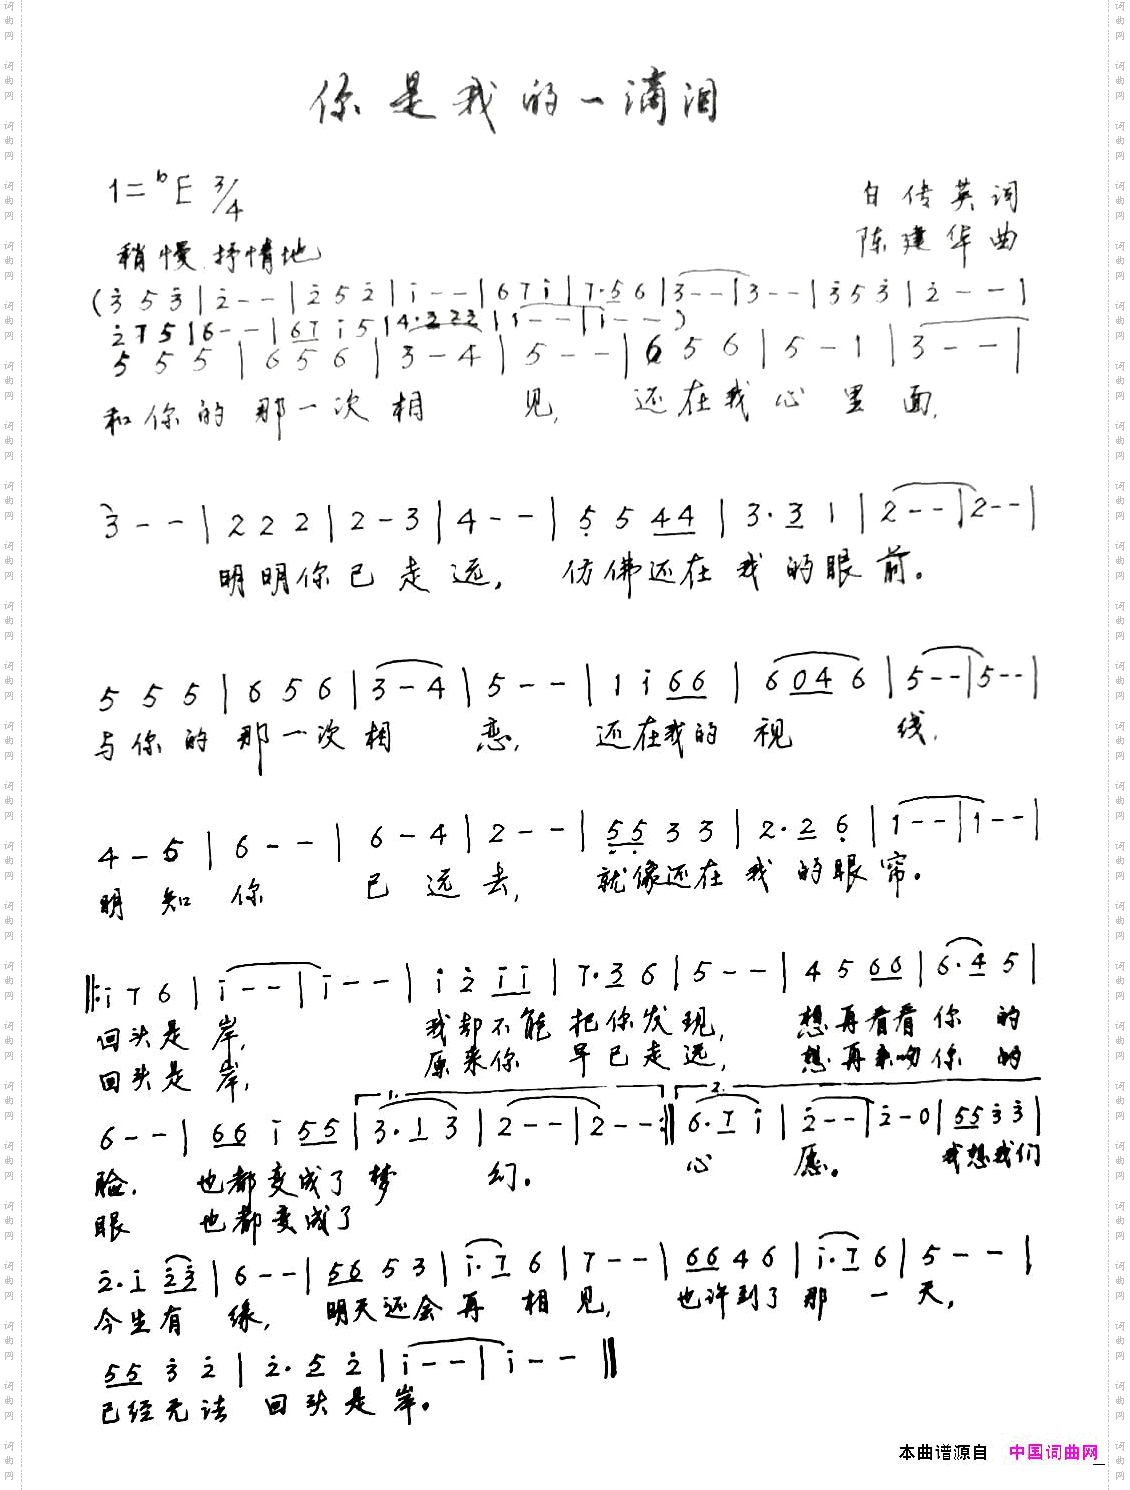 你是我的一滴泪
1=♭E 3/4
白传英词
稍慢 抒情地
陈建华曲
(3̇ 5 3̇ | 2̇ - - | 2̇ 5 2̇ | i - - | 6 7 i | 7· 5 6 | 3 - - | 3 - - | 3̇ 5 3̇ | 2̇ - - |
2̇ 7 5 | 6 - - | 6 7 i 5 | 4· 3 2 3 2 | 1 - - | i - - )
5 5 5 | 6 5 6 | 3 - 4 | 5 - - | 6 5 6 | 5 - 1 | 3 - - |
和你的那一次相见, 还在我心里面,
3 - - | 2 2 2 | 2 - 3 | 4 - - | 5̣ 5 4 4 | 3· 3 1 | 2 - - | 2 - - |
明明你已走远, 仿佛还在我的眼前。
5 5 5 | 6 5 6 | 3 - 4 | 5 - - | 1 i 6 6 | 6 0 4 6 | 5 - - | 5 - - |
与你的那一次相恋, 还在我的视线,
4 - 5 | 6 - - | 6 - 4 | 2 - - | 5̣ 5̣ 3 3 | 2· 2 6̣ | 1 - - | 1 - - |
明知你已远去, 就像还在我的眼帘。
‖: i 7 6 | i - - | i - - | i 2̇ i i | 7· 3 6 | 5 - - | 4 5 6 6 | 6· 4 5 |
回头是岸, 我却不能把你发现, 想再看看你的
回头是岸, 原来你早已走远, 想再来吻你的
6 - - | 6 6 i 5 5 | 1. 3· 1 3 | 2 - - | 2 - - :‖ 2. 6· 7 i | 2̇ - - | 2̇ - 0 | 5 5 3̇ 3̇ |
脸, 也都变成了梦幻。 心愿。 我想我们
眼 也都变成了
2̇· i 2̇ 3̇ | 6 - - | 5 6 5 3 | i· 7 6 | 7 - - | 6 6 4 6 | i· 7 6 | 5 - - |
今生有缘, 明天还会再相见, 也许到了那一天,
5 5 3̇ 2̇ | 2̇· 5 2̇ | i - - | i - - ‖
已经无法回头是岸。
本曲谱源自 中国词曲网